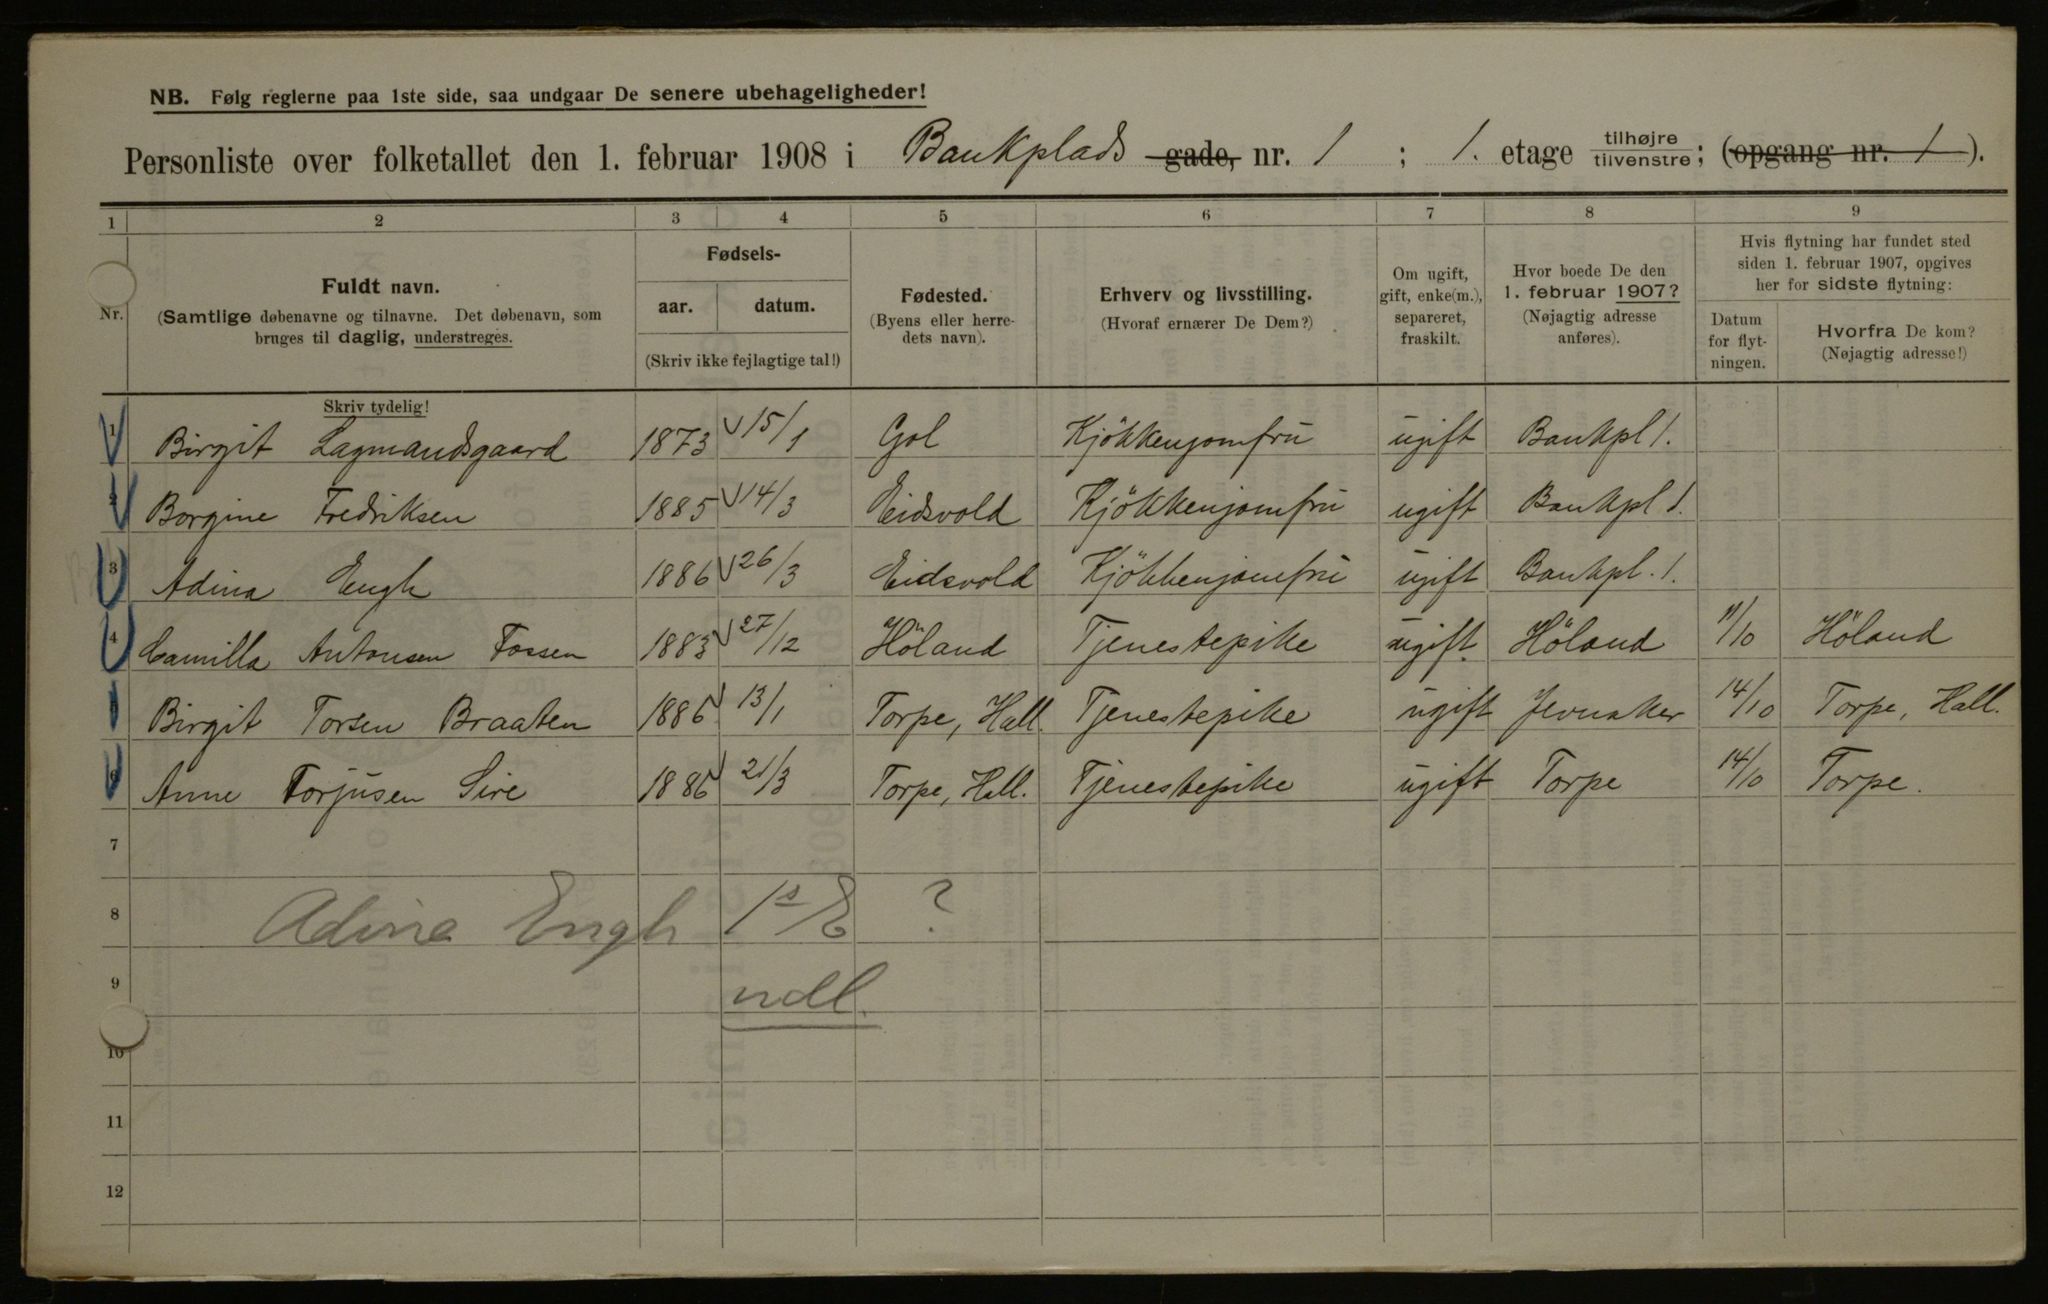 NB. Følg reglerne paa 1ste side, saa undgaar De senere ubehageligheder!
Personliste over folketallet den 1. februar 1908 i Bankplads gade, nr. 1 ; 1. etage tilhøjre tilvenstre; (opgang nr. 1 ).
1 2 3 4 5 6 7 8 9
Nr.
Fuldt navn.
(Samtlige døbenavne og tilnavne. Det døbenavn, som
bruges til daglig, understreges.
Skriv tydelig!
Fødsels-
aar. datum.
(Skriv ikke fejlagtige tal!)
Fødested.
(Byens eller herre-
dets navn).
Erhverv og livsstilling.
(Hvoraf ernærer De Dem?)
Om ugift,
gift, enke(m.),
separeret,
fraskilt.
Hvor boede De den
1. februar 1907?
(Nøjagtig adresse
anføres).
Hvis flytning har fundet sted
siden 1. februar 1907, opgives
her for sidste flytning:
Datum
for flyt-
ningen.
Hvorfra De kom?
(Nøjagtig adresse!)
1 Birgit Lagmandsgaard 1873 15/1 Gol Kjökkenjomfru ugift Bankpl 1.
2 Borgine Fredriksen 1885 14/3 Eidsvold Kjökkenjomfru ugift Bankpl 1.
3 Adina Engh 1886 26/3 Eidsvold Kjökkenjomfru ugift Bankpl. 1.
4 Camilla Antonsen Fossen 1883 27/12 Höland Tjenestepike ugift. Höland 11/10 Höland
Birgit Torsen Braaten 1886 13/1 Torpe, Hall. Tjenestepike ugift Jevnaker 14/10 Torpe, Hall.
6 Anne Torjusen Sire 1886 21/3 Torpe, Hall. Tjenestepike ugift Torpe 14/10 Torpe.
7
8 Adina Engh 1s E ?
9 ndl.
10
11
12